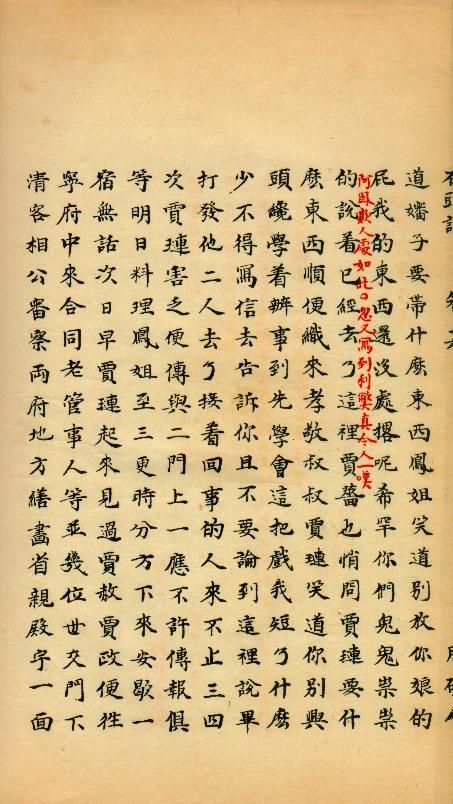 道嬸子要帶什麽東西鳳姐笑道别放你娘的
屁我的東西還没處撂呢希罕你們鬼鬼祟祟
的說着已經去了這裡賈薔也悄問賈璉要什
阿鳳欺人處如此忽又寫到利弊真令人一嘆
麽東西順便織來孝敬叔叔賈璉笑道你别興
頭纔學着辦事到先學會這把戲我短了什麽
少不得寫信去告訴你且不要論到這裡說畢
打發他二人去了接着回事的人來不止三四
次賈璉害乏便傳與二門上一應不許傳報俱
等明日料理鳳姐至三更時分方下來安歇一
宿無話次日早賈璉起來見過賈赦賈政便徃
寧府中來合同老管事人等並幾位世交門下
清客相公審察両府地方繕畫省親殿宇一面